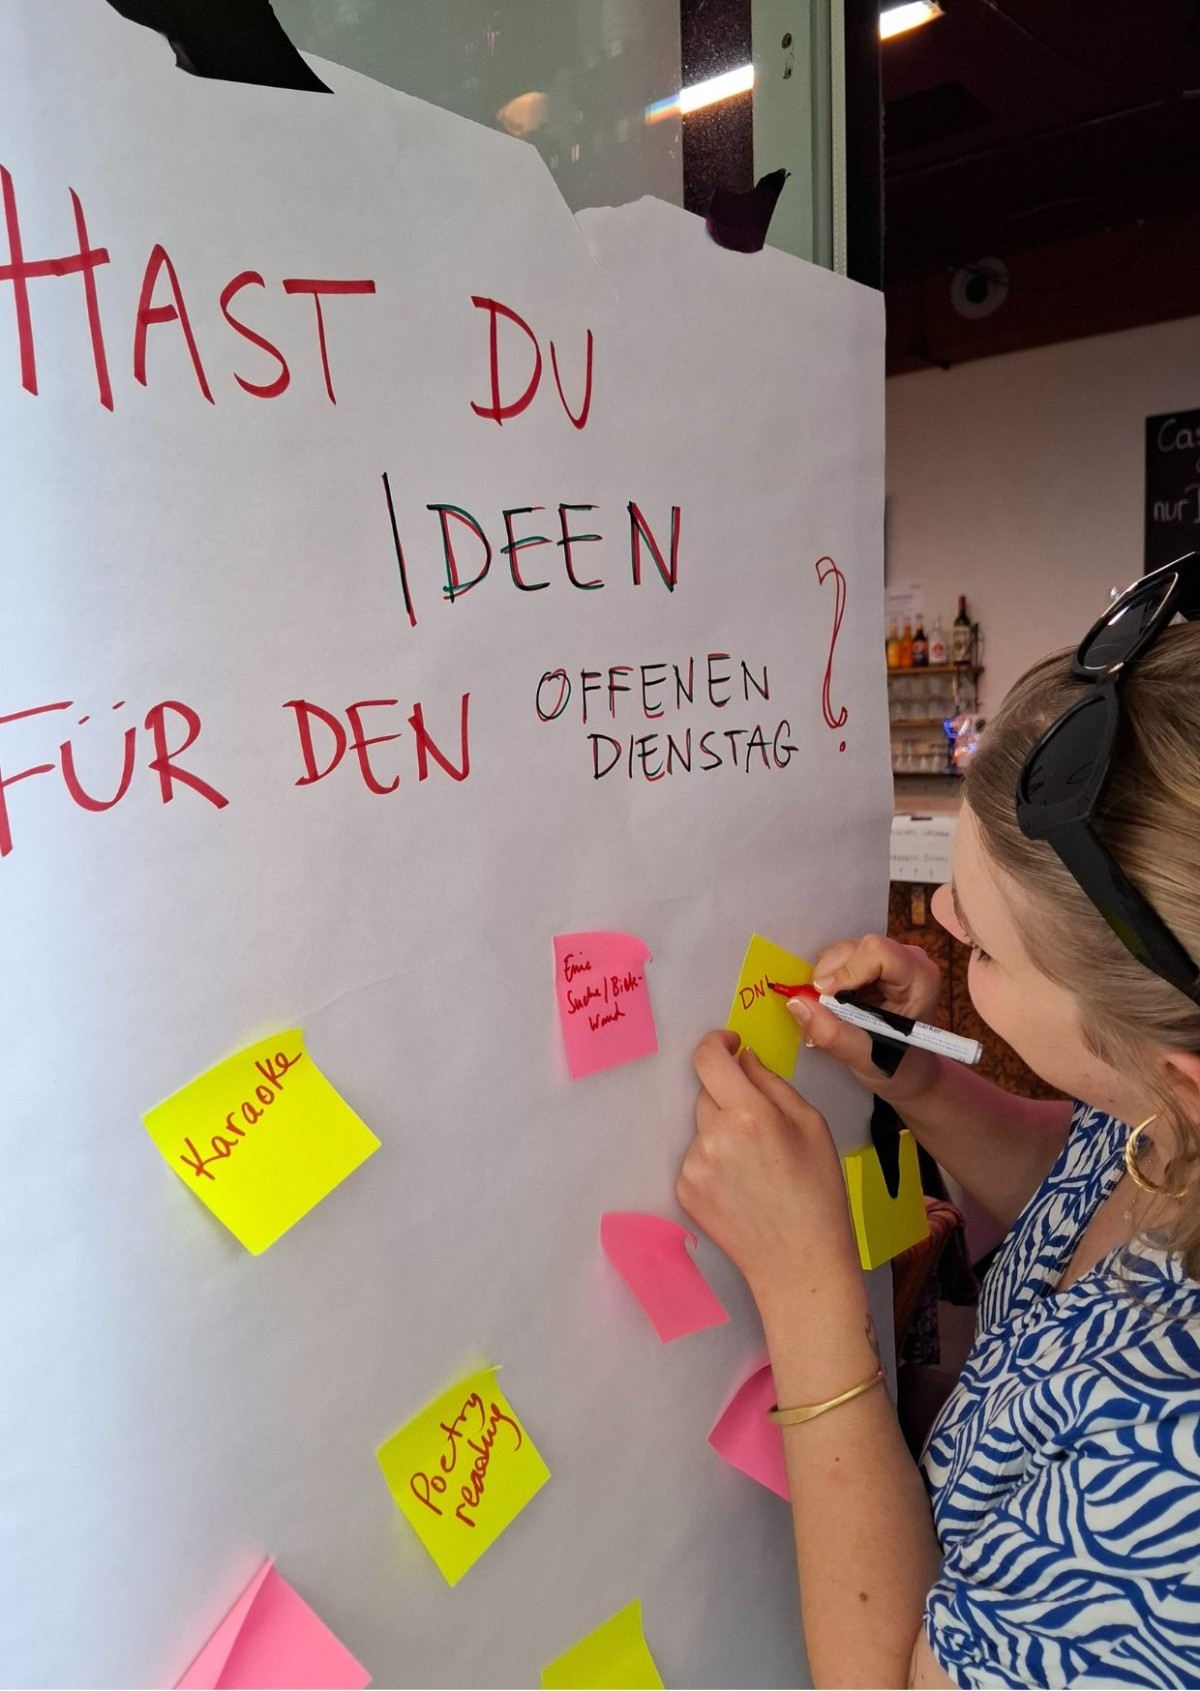 HAST DU
IDEEN
FÜR DEN OFFENEN
DIENSTAG ?
Eine
Suche/Biete-
Wand
DN
Karaoke
Poetry
reading
Ca
nur